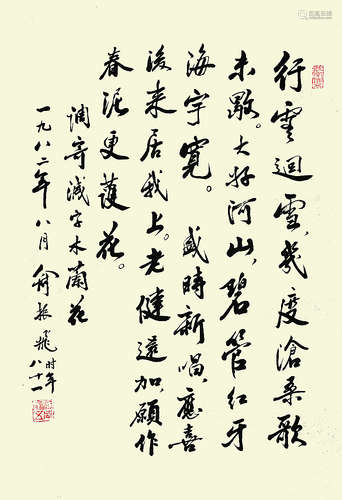 行云迴雪，几度滄桑歌
未歇。大好河山，碧管红牙
海宇宽。盛时新唱，应喜
后来居我上。老健逾加，願作
春泥更護花。
调寄减字木兰花
一九八二年八月 俞振飞 时年
八十一